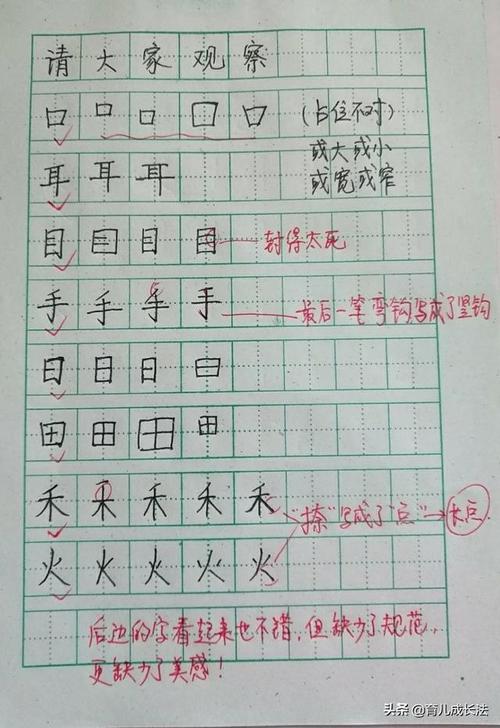 请大家观察
口口口口口 (占位不对)
或大或小
耳耳耳 或宽或窄
目目目目 封得太死
手手手手 最后一笔弯钩写成了竖钩
日日日日
田田田田
禾禾禾禾禾 "捺"写成了"点"→长点
火火火火火
后边的字看起来也不错,但缺少了规范,
更缺少了美感!
头条 @育儿成长法